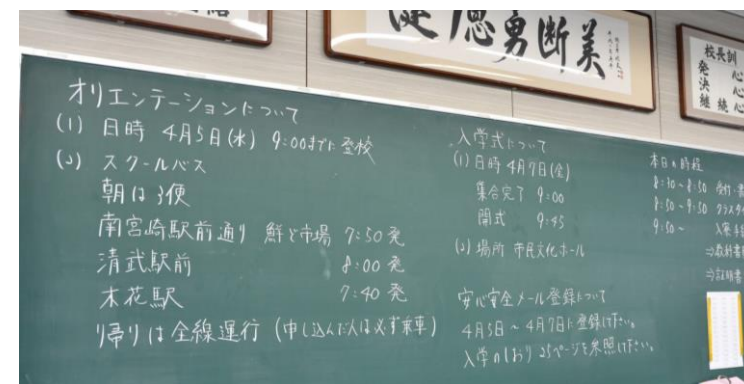 美断勇
校長訓
発 心
決 心
継続心
オリエンテーションについて
(1) 日時 4月5日(水) 9:00までに登校
(2) スクールバス
朝は3便
南宮崎駅前通り 鮮ど市場 7:50発
清武駅前 8:00発
木花駅 7:40発
帰りは全線運行 (申し込んだ人は必ず乗車)
入学式について
(1) 日時 4月7日(金)
集合完了 9:00
開式 9:45
(2) 場所 市民文化ホール
安心安全メール登録について
4月5日~4月7日に登録して下さい。
入学のしおり25ページを参照して下さい。
本日の時程
8:30~8:50 受付・書
8:50~9:50 クラスタイ
9:50~ 入寮手
⇒教科書
⇒証明書